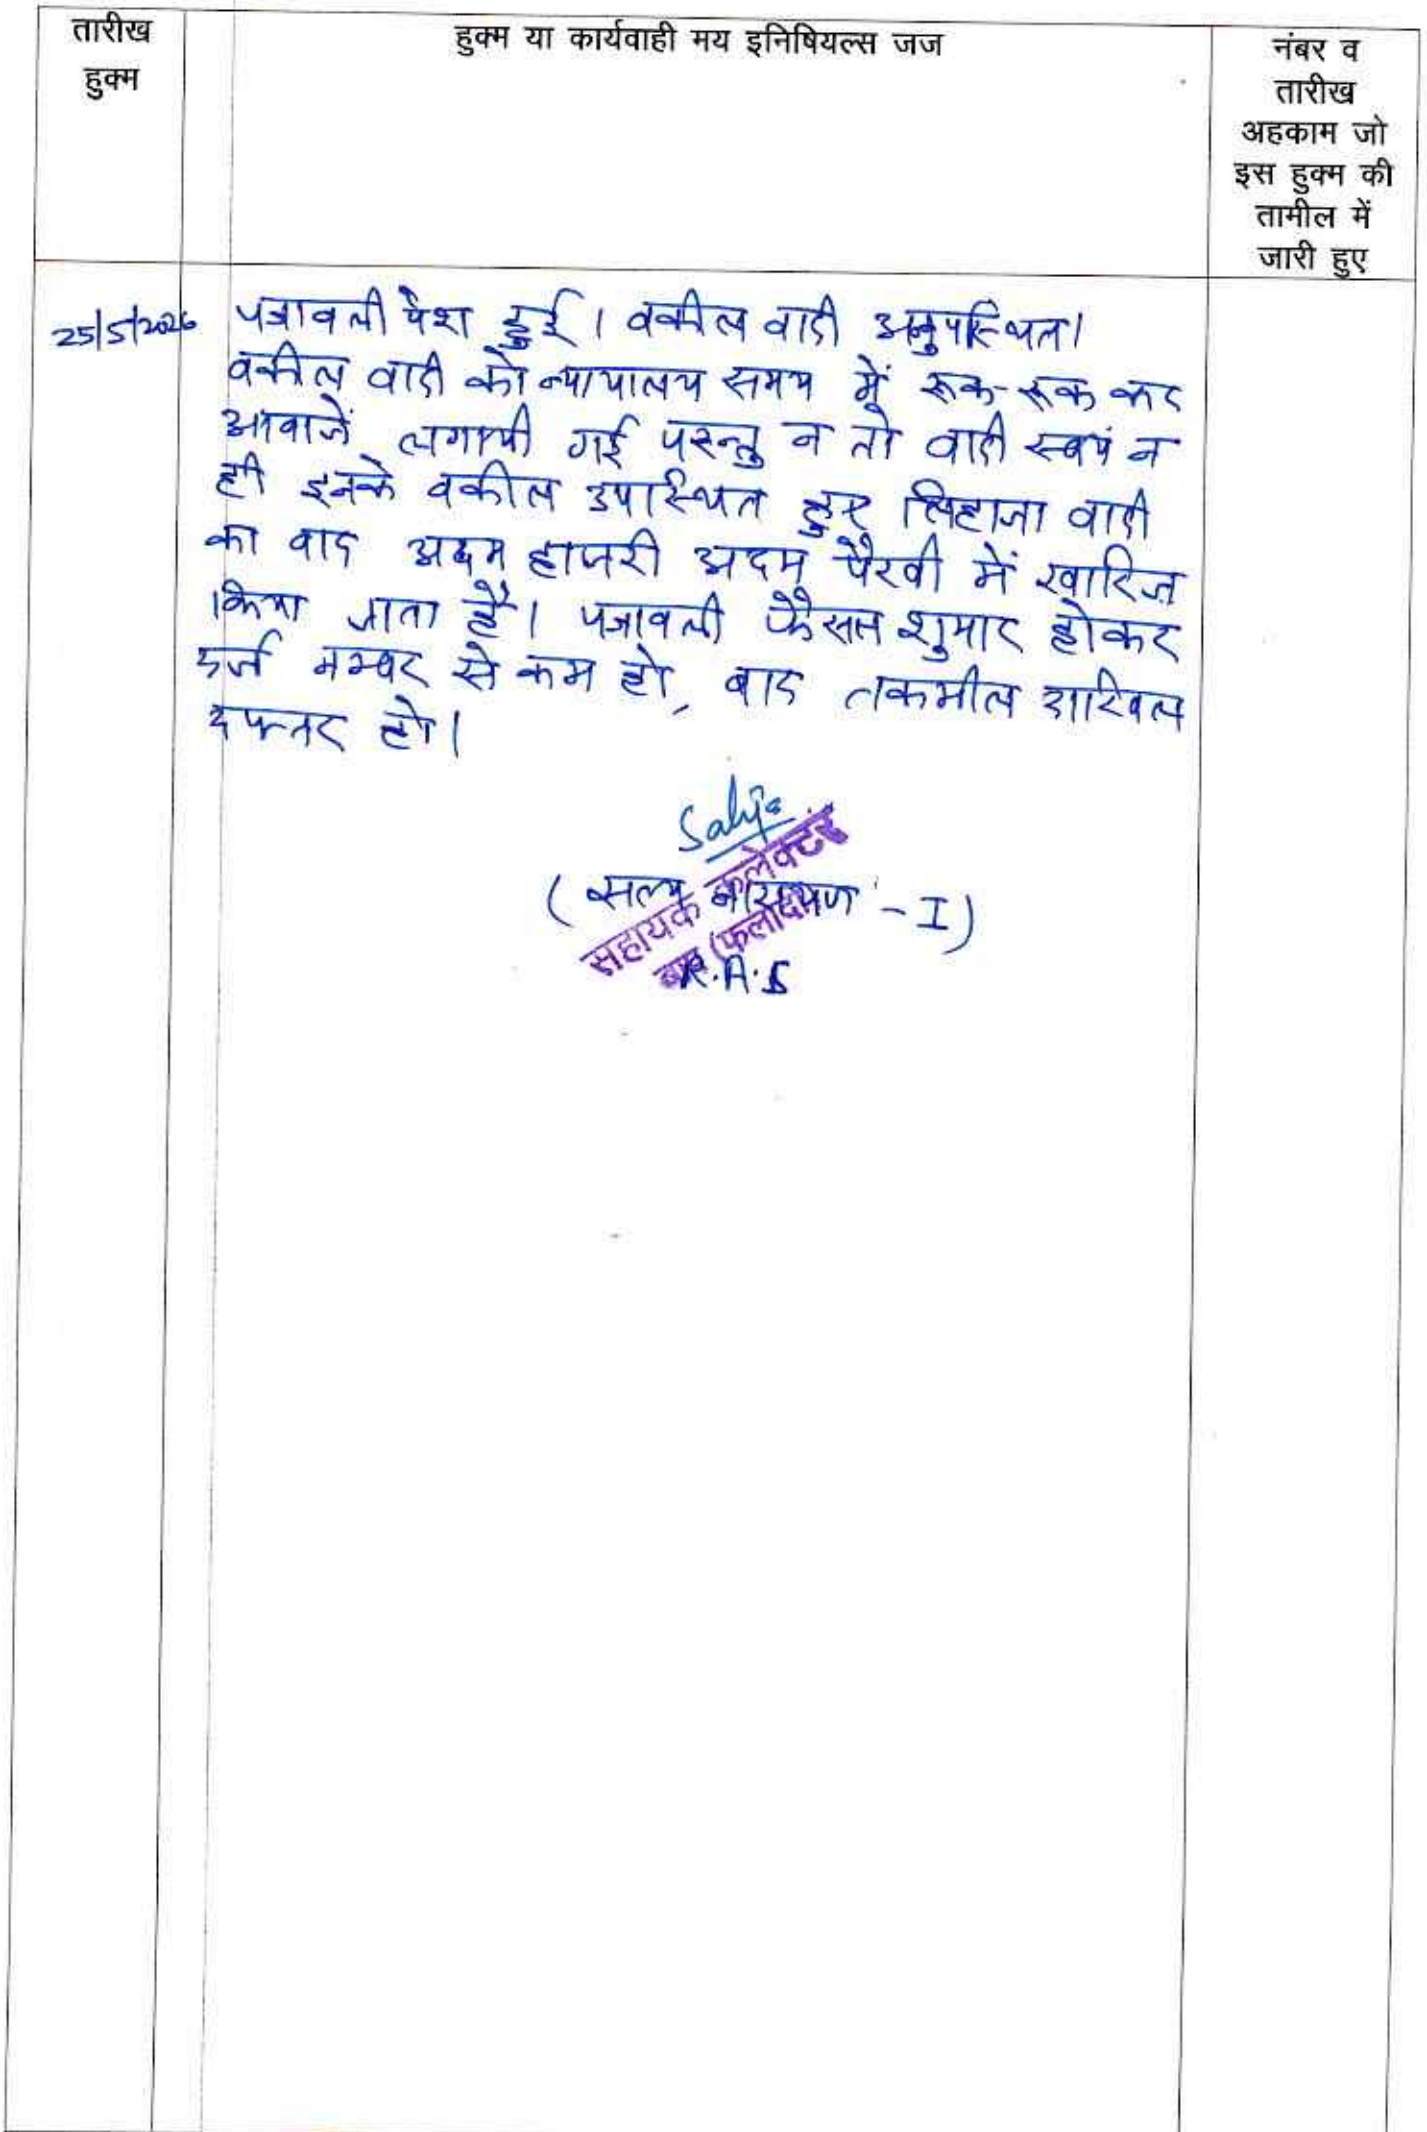 तारीख
हुक्म
हुक्म या कार्यवाही मय इनिषियल्स जज
नंबर व
तारीख
अहकाम जो
इस हुक्म की
तामील में
जारी हुए
25/5/2026
पत्रावली पेश हुई। वकील वादी अनुपस्थित।
वकील वादी को न्यायालय समय में रूक-रूक कर
आवाजें लगायी गई परन्तु न तो वादी स्वयं न
ही इनके वकील उपस्थित हुए लिहाजा वादी
का वाद अदम हाजरी अदम पैरवी में खारिज
किया जाता है। पत्रावली फैसल शुमार होकर
दर्ज नम्बर से कम हो, बाद तकमील दाखिल
दफ्तर हो।
(सत्य नारायण - I)
सहायक कलेक्टर
बाप (फलोदी)
R.A.S